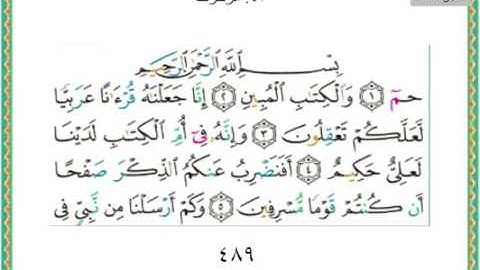 بِسْمِ ٱللَّهِ ٱلرَّحْمَٰنِ ٱلرَّحِيمِ
حمٓ ﴿١﴾ وَٱلْكِتَٰبِ ٱلْمُبِينِ ﴿٢﴾ إِنَّا جَعَلْنَٰهُ قُرْءَٰنًا عَرَبِيًّا
لَّعَلَّكُمْ تَعْقِلُونَ ﴿٣﴾ وَإِنَّهُۥ فِىٓ أُمِّ ٱلْكِتَٰبِ لَدَيْنَا
لَعَلِىٌّ حَكِيمٌ ﴿٤﴾ أَفَنَضْرِبُ عَنكُمُ ٱلذِّكْرَ صَفْحًا
أَن كُنتُمْ قَوْمًا مُّسْرِفِينَ ﴿٥﴾ وَكَمْ أَرْسَلْنَا مِن نَّبِىٍّ فِى
٤٨٩